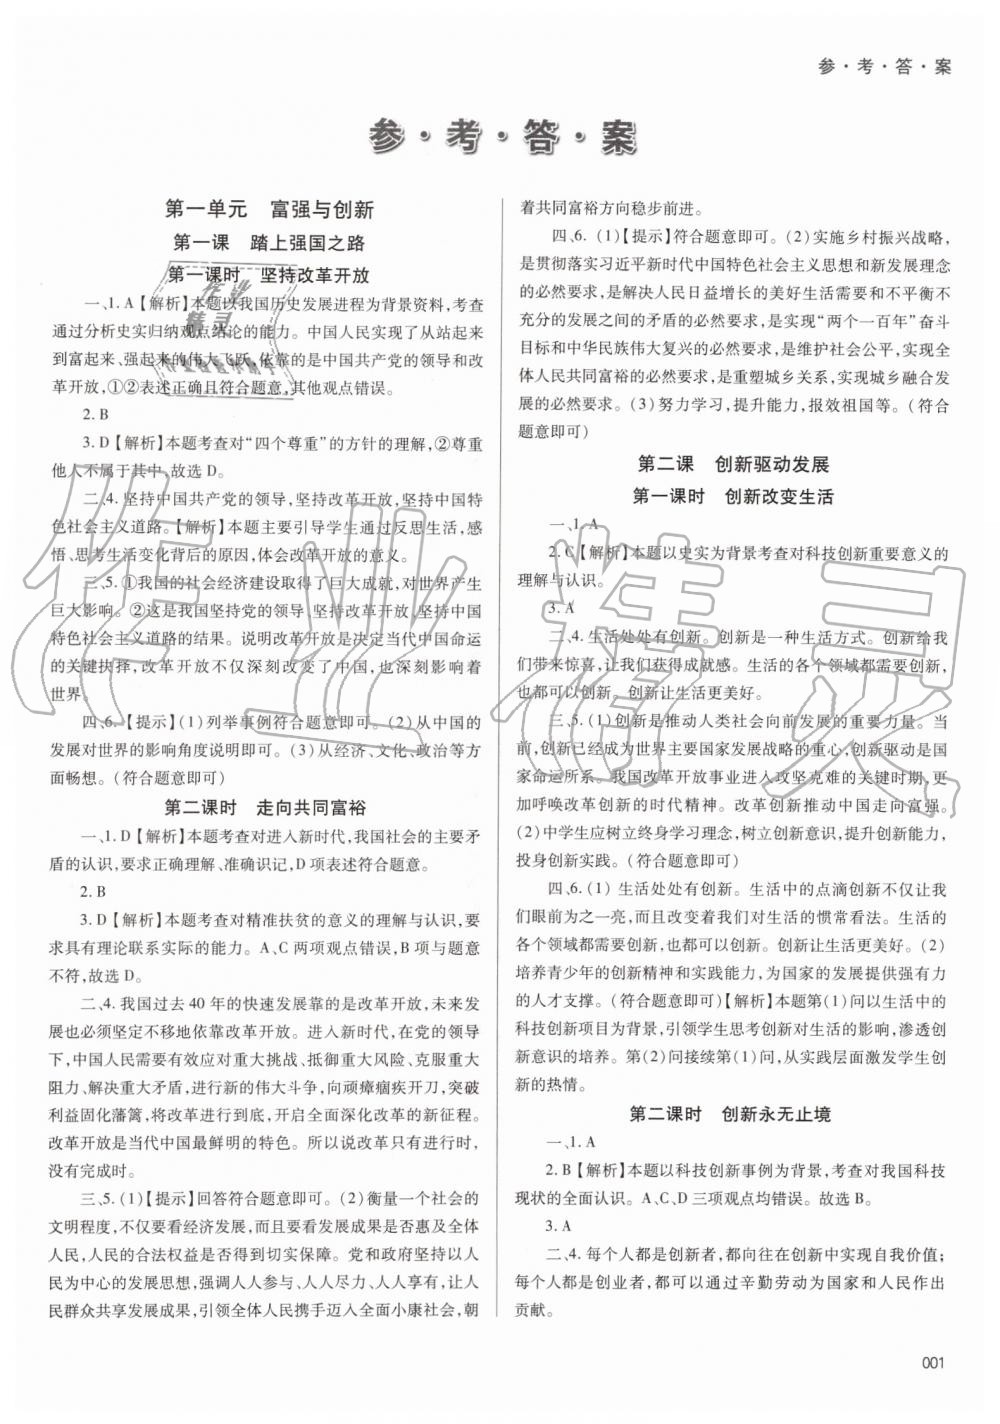 参·考·答·案
参·考·答·案
第一单元 富强与创新
第一课 踏上强国之路
第一课时 坚持改革开放
一、1. A【解析】本题以我国历史发展进程为背景资料,考查
通过分析史实归纳观点结论的能力。中国人民实现了从站起来
到富起来、强起来的伟大飞跃,依靠的是中国共产党的领导和改
革开放,①②表述正确且符合题意,其他观点错误。
2. B
3. D【解析】本题考查对“四个尊重”的方针的理解,②尊重
他人不属于其中,故选 D。
二、4. 坚持中国共产党的领导,坚持改革开放,坚持中国特
色社会主义道路。【解析】本题主要引导学生通过反思生活,感
悟、思考生活变化背后的原因,体会改革开放的意义。
三、5. ①我国的社会经济建设取得了巨大成就,对世界产生
巨大影响。②这是我国坚持党的领导,坚持改革开放,坚持中国
特色社会主义道路的结果。说明改革开放是决定当代中国命运
的关键抉择,改革开放不仅深刻改变了中国,也深刻影响着
世界。
四、6.【提示】(1)列举事例符合题意即可。(2)从中国的
发展对世界的影响角度说明即可。(3)从经济、文化、政治等方
面畅想。(符合题意即可)
第二课时 走向共同富裕
一、1. D【解析】本题考查对进入新时代,我国社会的主要矛
盾的认识,要求正确理解、准确识记,D 项表述符合题意。
2. B
3. D【解析】本题考查对精准扶贫的意义的理解与认识,要
求具有理论联系实际的能力。A、C 两项观点错误,B 项与题意
不符,故选 D。
二、4. 我国过去 40 年的快速发展靠的是改革开放,未来发
展也必须坚定不移地依靠改革开放。进入新时代,在党的领导
下,中国人民需要有效应对重大挑战、抵御重大风险、克服重大
阻力、解决重大矛盾,进行新的伟大斗争,向顽瘴痼疾开刀,突破
利益固化藩篱,将改革进行到底,开启全面深化改革的新征程。
改革开放是当代中国最鲜明的特色。所以说改革只有进行时,
没有完成时。
三、5. (1)【提示】回答符合题意即可。(2)衡量一个社会的
文明程度,不仅要看经济发展,而且要看发展成果是否惠及全体
人民,人民的合法权益是否得到切实保障。党和政府坚持以人
民为中心的发展思想,强调人人参与、人人尽力、人人享有,让人
民群众共享发展成果,引领全体人民携手迈入全面小康社会,朝
着共同富裕方向稳步前进。
四、6. (1)【提示】符合题意即可。(2)实施乡村振兴战略,
是贯彻落实习近平新时代中国特色社会主义思想和新发展理念
的必然要求,是解决人民日益增长的美好生活需要和不平衡不
充分的发展之间的矛盾的必然要求,是实现“两个一百年”奋斗
目标和中华民族伟大复兴的必然要求,是维护社会公平,实现全
体人民共同富裕的必然要求,是重塑城乡关系,实现城乡融合发
展的必然要求。(3)努力学习,提升能力,报效祖国等。(符合
题意即可)
第二课 创新驱动发展
第一课时 创新改变生活
一、1. A
2. C【解析】本题以史实为背景考查对科技创新重要意义的
理解与认识。
3. A
二、4. 生活处处有创新。创新是一种生活方式。创新给我
们带来惊喜,让我们获得成就感。生活的各个领域都需要创新,
也都可以创新。创新让生活更美好。
三、5. (1)创新是推动人类社会向前发展的重要力量。当
前,创新已经成为世界主要国家发展战略的重心,创新驱动是国
家命运所系。我国改革开放事业进入攻坚克难的关键时期,更
加呼唤改革创新的时代精神。改革创新推动中国走向富强。
(2)中学生应树立终身学习理念,树立创新意识,提升创新能力,
投身创新实践。(符合题意即可)
四、6. (1)生活处处有创新。生活中的点滴创新不仅让我
们眼前为之一亮,而且改变着我们对生活的惯常看法。生活的
各个领域都需要创新,也都可以创新。创新让生活更美好。(2)
培养青少年的创新精神和实践能力,为国家的发展提供强有力
的人才支撑。(符合题意即可)【解析】本题第(1)问以生活中的
科技创新项目为背景,引领学生思考创新对生活的影响,渗透创
新意识的培养。第(2)问接续第(1)问,从实践层面激发学生创
新的热情。
第二课时 创新永无止境
一、1. A
2. B【解析】本题以科技创新事例为背景,考查对我国科技
现状的全面认识。A、C、D 三项观点均错误。故选 B。
3. A
二、4. 每个人都是创新者,都向往在创新中实现自我价值;
每个人都是创业者,都可以通过辛勤劳动为国家和人民作出
贡献。
001
作业精灵
作业
精灵